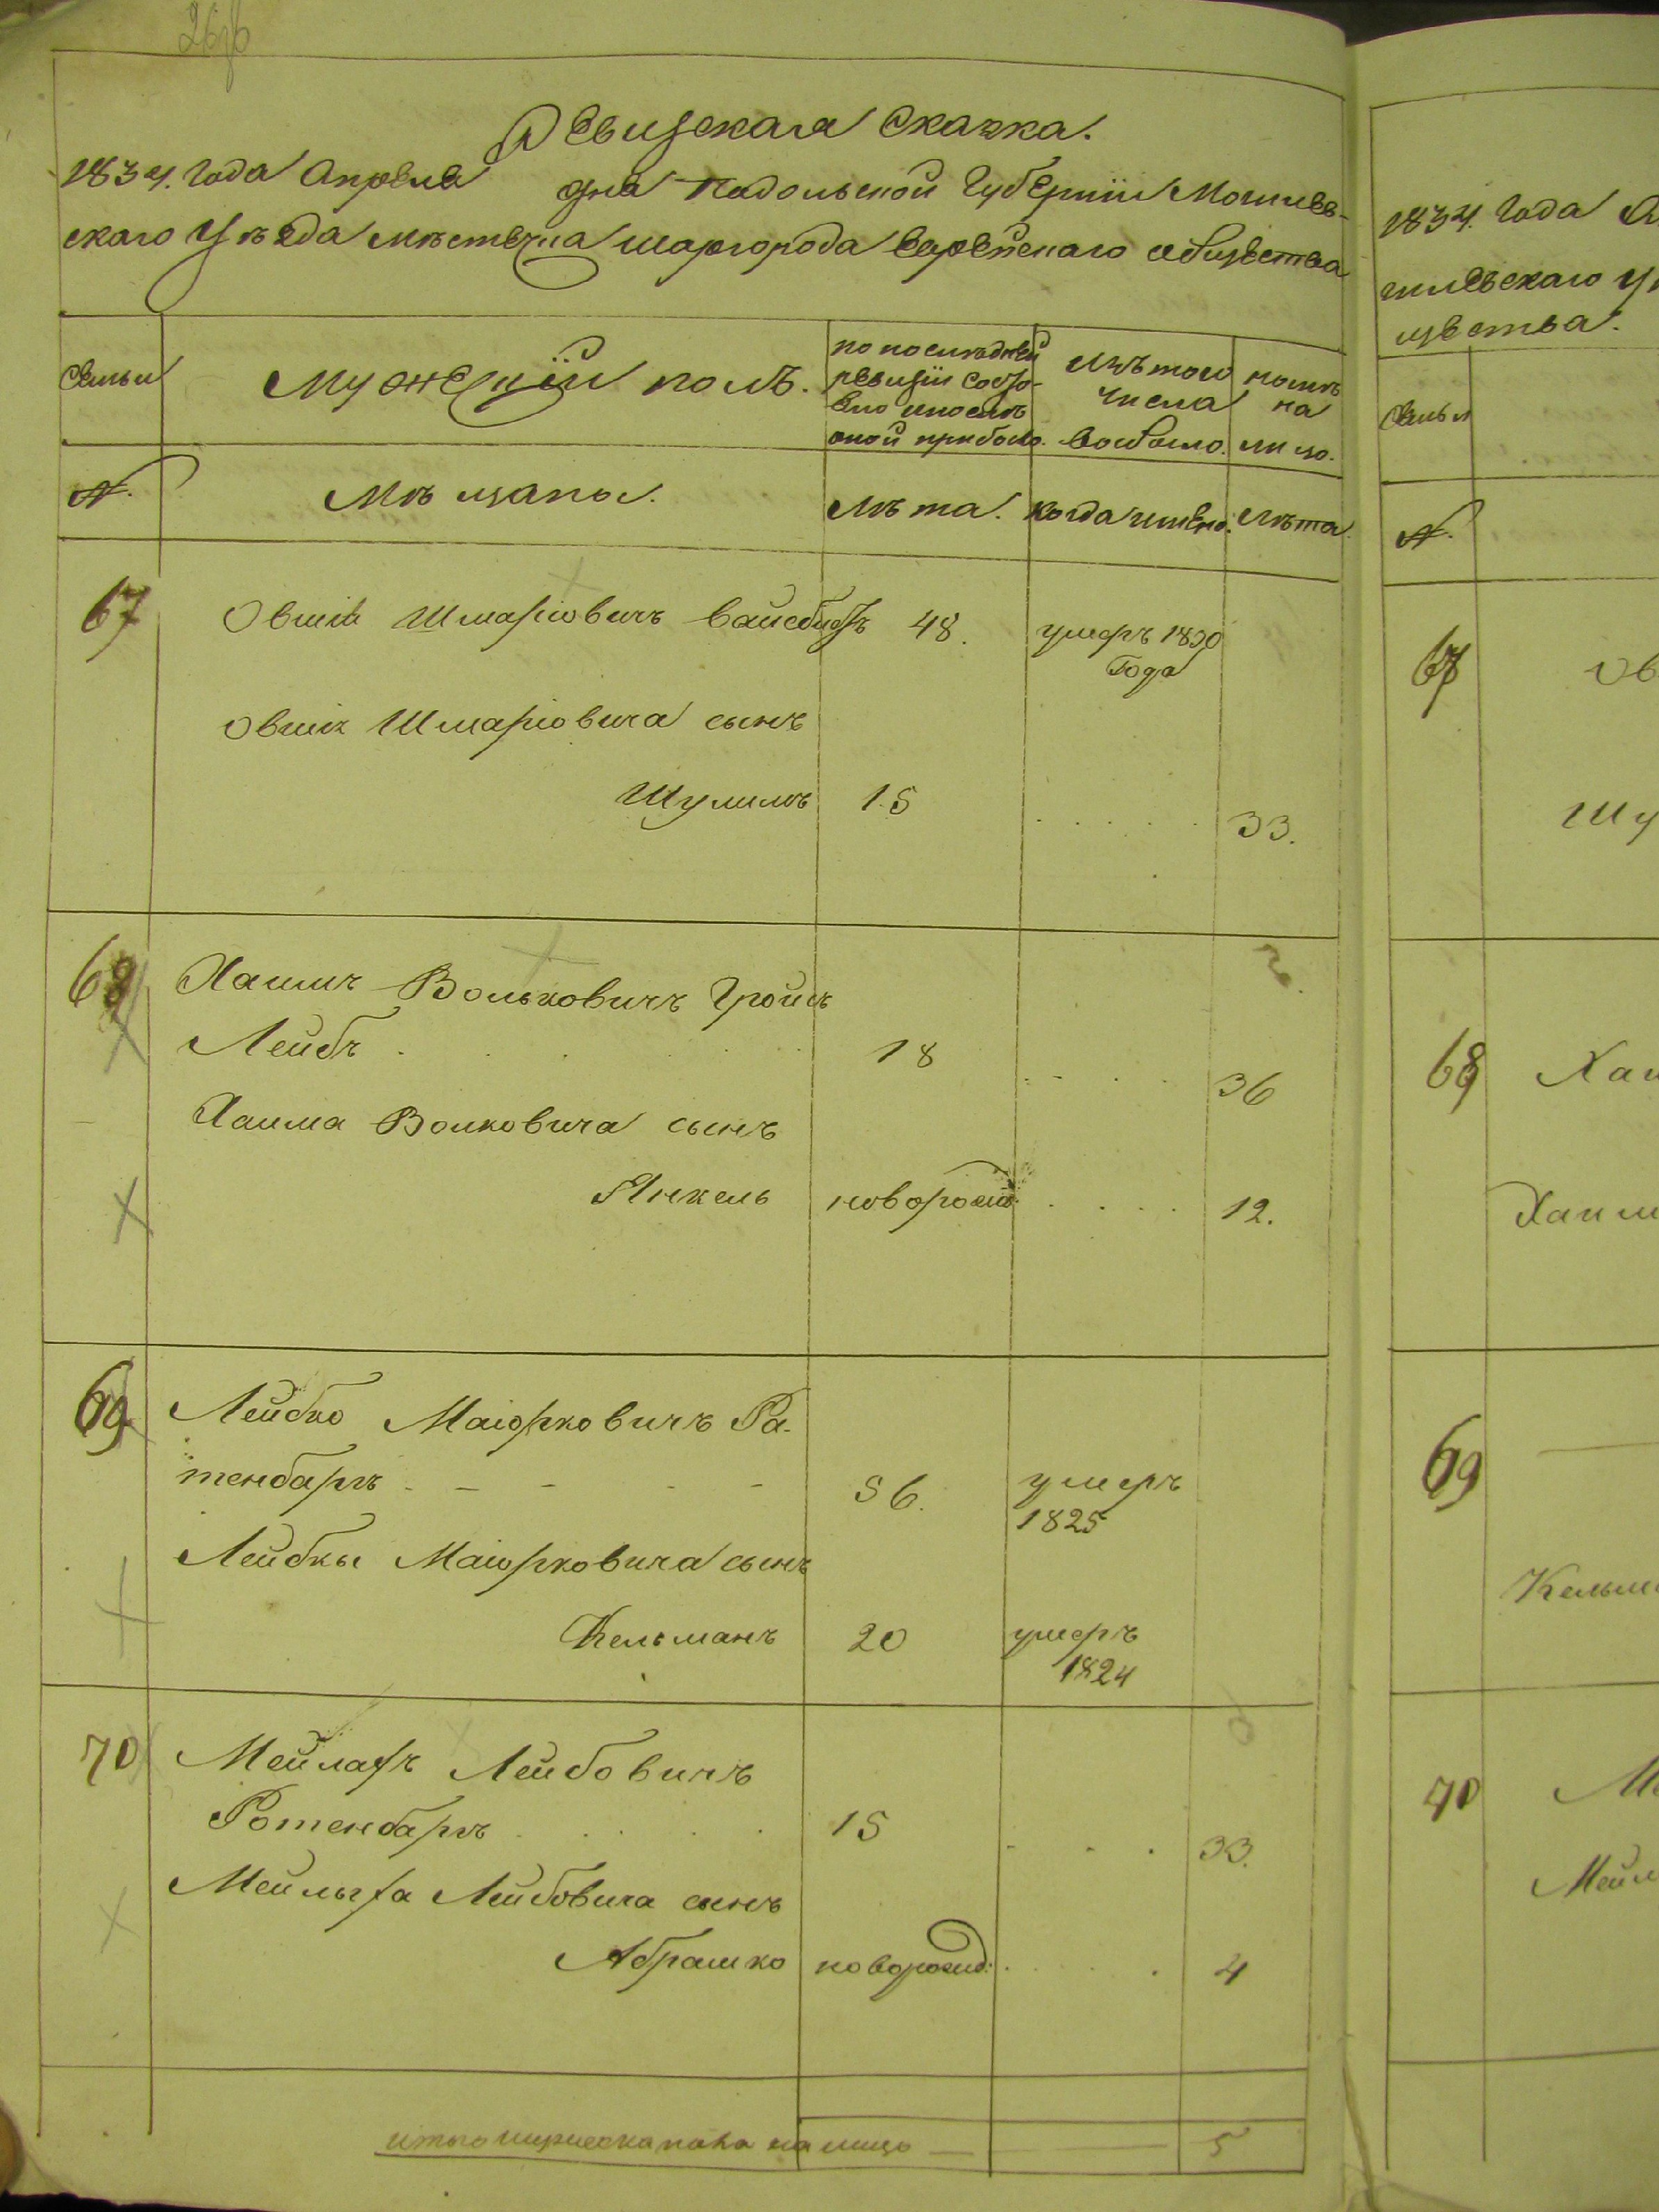 Ревизская сказка.
1834. года Апреля дня Подольской Губернии Могилев-
скаго Уѣзда мѣстечка шаргорода Еврейскаго общества
Семьи
Мужескій полъ.
по последней
ревизіи состо-
яло и после
оной прибыло.
Изъ того
числа
выбыло.
ныне
на
лицо.
№.
Мѣщаны.
Лѣта.
когда имено.
Лѣта.
67
Овшія Шмаріовичъ
48.
умеръ 1830
Года
Овшія Шмаріовича сынъ
Шулимъ
15
33.
68
Хаимъ Вольковичъ Гройсъ
Лейбъ
18
36
Хаима Волковича сынъ
Янкель
новорожд.
12.
69
Лейбко Маіорковичъ Ра-
тенбаръ
56.
умеръ
1825
Лейбки Маіорковича сынъ
Кельманъ
20
умеръ
1824
70
Мейлахъ Лейбовичъ
Ротенбаръ
15
33.
Мейлыха Лейбовича сынъ
Абрашко
новорожд:
4
итого мужеска пола на лицо
5
1834. года А
гилевскаго Уѣ
щества.
Семьи
№.
67
Ов
Шу
68
Хаи
Хаим
69
Кельм
70
Ме
Мейл